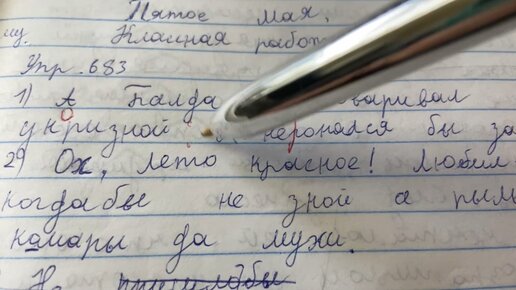 Пятое мая.
Класная работ
Упр. 683
1) А Балда варивал
укризной неронался бы за
2) Ох, лето красное! Любил
когда бы не зной а пыль
камары да мухи.
Не